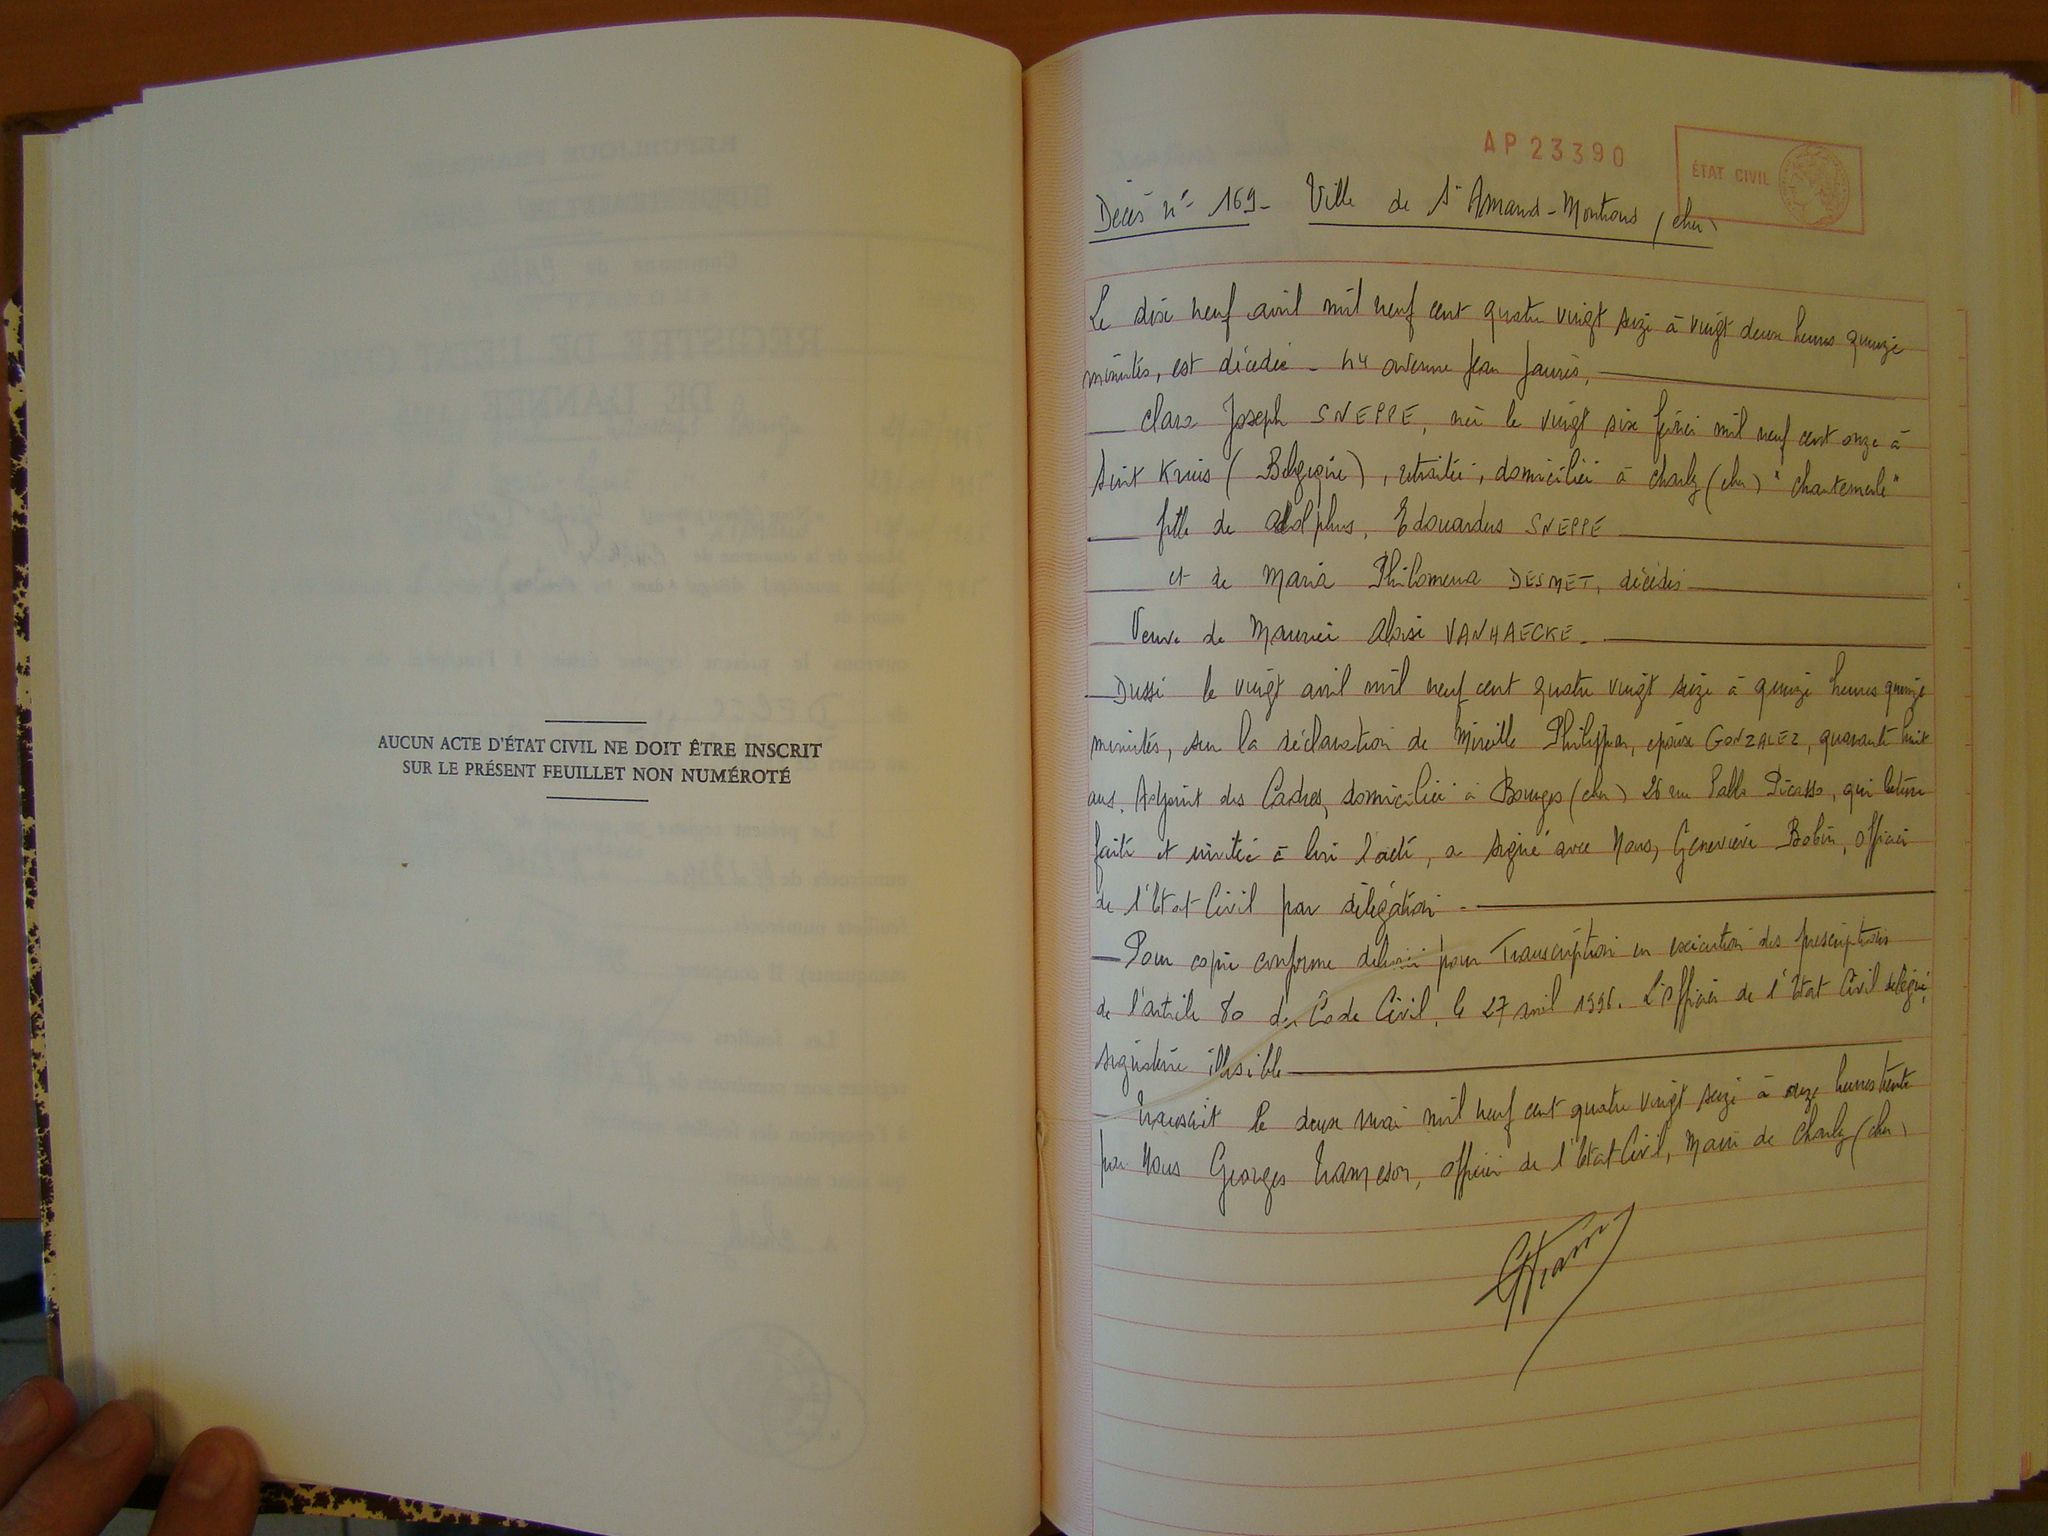 AUCUN ACTE D'ÉTAT CIVIL NE DOIT ÊTRE INSCRIT
SUR LE PRÉSENT FEUILLET NON NUMÉROTÉ
AP 23390
ÉTAT CIVIL
Décès n° 169 - Ville de St Amand-Montrond (cher)
Le dix neuf avril mil neuf cent quatre vingt seize à vingt deux heures quinze
minutes, est décédée - 44 avenue Jean Jaurès,
Clara Joseph SNEPPE, née le vingt six février mil neuf cent onze à
Sint Kruis (Belgique), retraitée, domiciliée à Charly (cher) "Chantemerle"
fille de Adolphus, Edouardus SNEPPE
et de Maria Philomena DESMET, décédés
Veuve de Maurice Aloïse VANHAECKE.
Dressé le vingt avril mil neuf cent quatre vingt seize à quinze heures quinze
minutes, sur la déclaration de Mireille Philippon, épouse GONZALEZ, quarante huit
ans, Adjoint des Cadres, domiciliée à Bourges (cher) 26 rue Pablo Picasso, qui lecture
faite et invitée à lire l'acte, a signé avec Nous, Geneviève Bobin, officier
de l'Etat Civil par délégation.
Pour copie conforme délivrée pour Transcription en exécution des prescriptions
de l'article 80 du Code Civil, le 27 avril 1996. L'officier de l'Etat Civil délégué,
signature illisible
Transcrit le deux mai mil neuf cent quatre vingt seize à onze heures trente
par Nous Georges Trameson, officier de l'Etat Civil, Maire de Charly (cher)